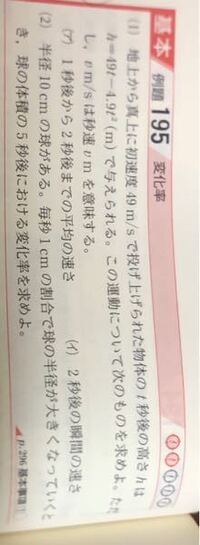 基本 例題 195 変化率
(1) 地上から真上に初速度 49 m/s で投げ上げられた物体の t 秒後の高さ h は
h=49t-4.9t² (m) で与えられる。この運動について次のものを求めよ。ただ
し，v m/s は秒速 v m を意味する。
(ア) 1 秒後から 2 秒後までの平均の速さ (イ) 2 秒後の瞬間の速さ
(2) 半径 10 cm の球がある。毎秒 1 cm の割合で球の半径が大きくなっていくと
き，球の体積の 5 秒後における変化率を求めよ。
p.296 基本事項 1